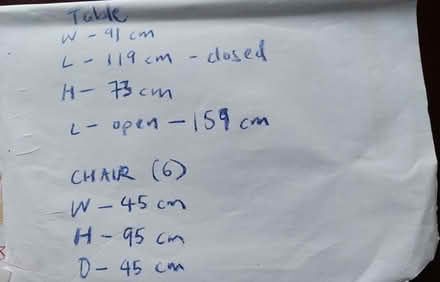 Table
W - 91 cm
L - 119 cm - closed
H - 73 cm
L - open - 159 cm
CHAIR (6)
W - 45 cm
H - 95 cm
D - 45 cm